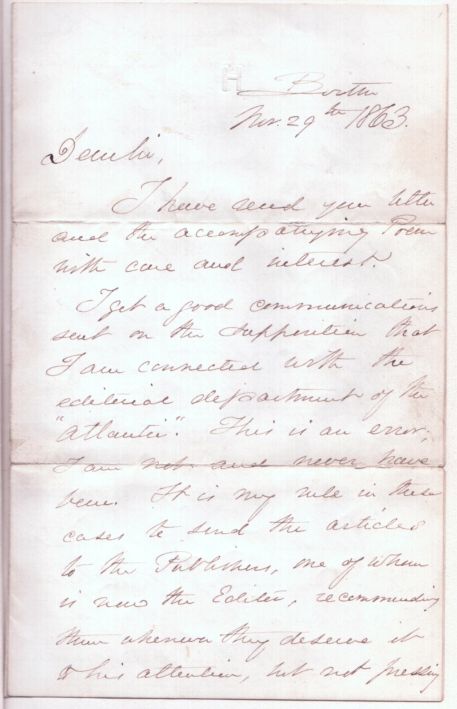 H
Boston
Nov. 29th 1863.
Dear Sir,
I have read your letter
and the accompanying Poem
with care and interest.
I get a good communications
sent on the supposition that
I am connected with the
editorial department of the
"Atlantic". This is an error;
I am not and never have
been. It is my rule in these
cases to send the articles
to the Publishers, one of whom
is now the Editor, recommending
them whenever they deserve it
to his attention, but not pressing